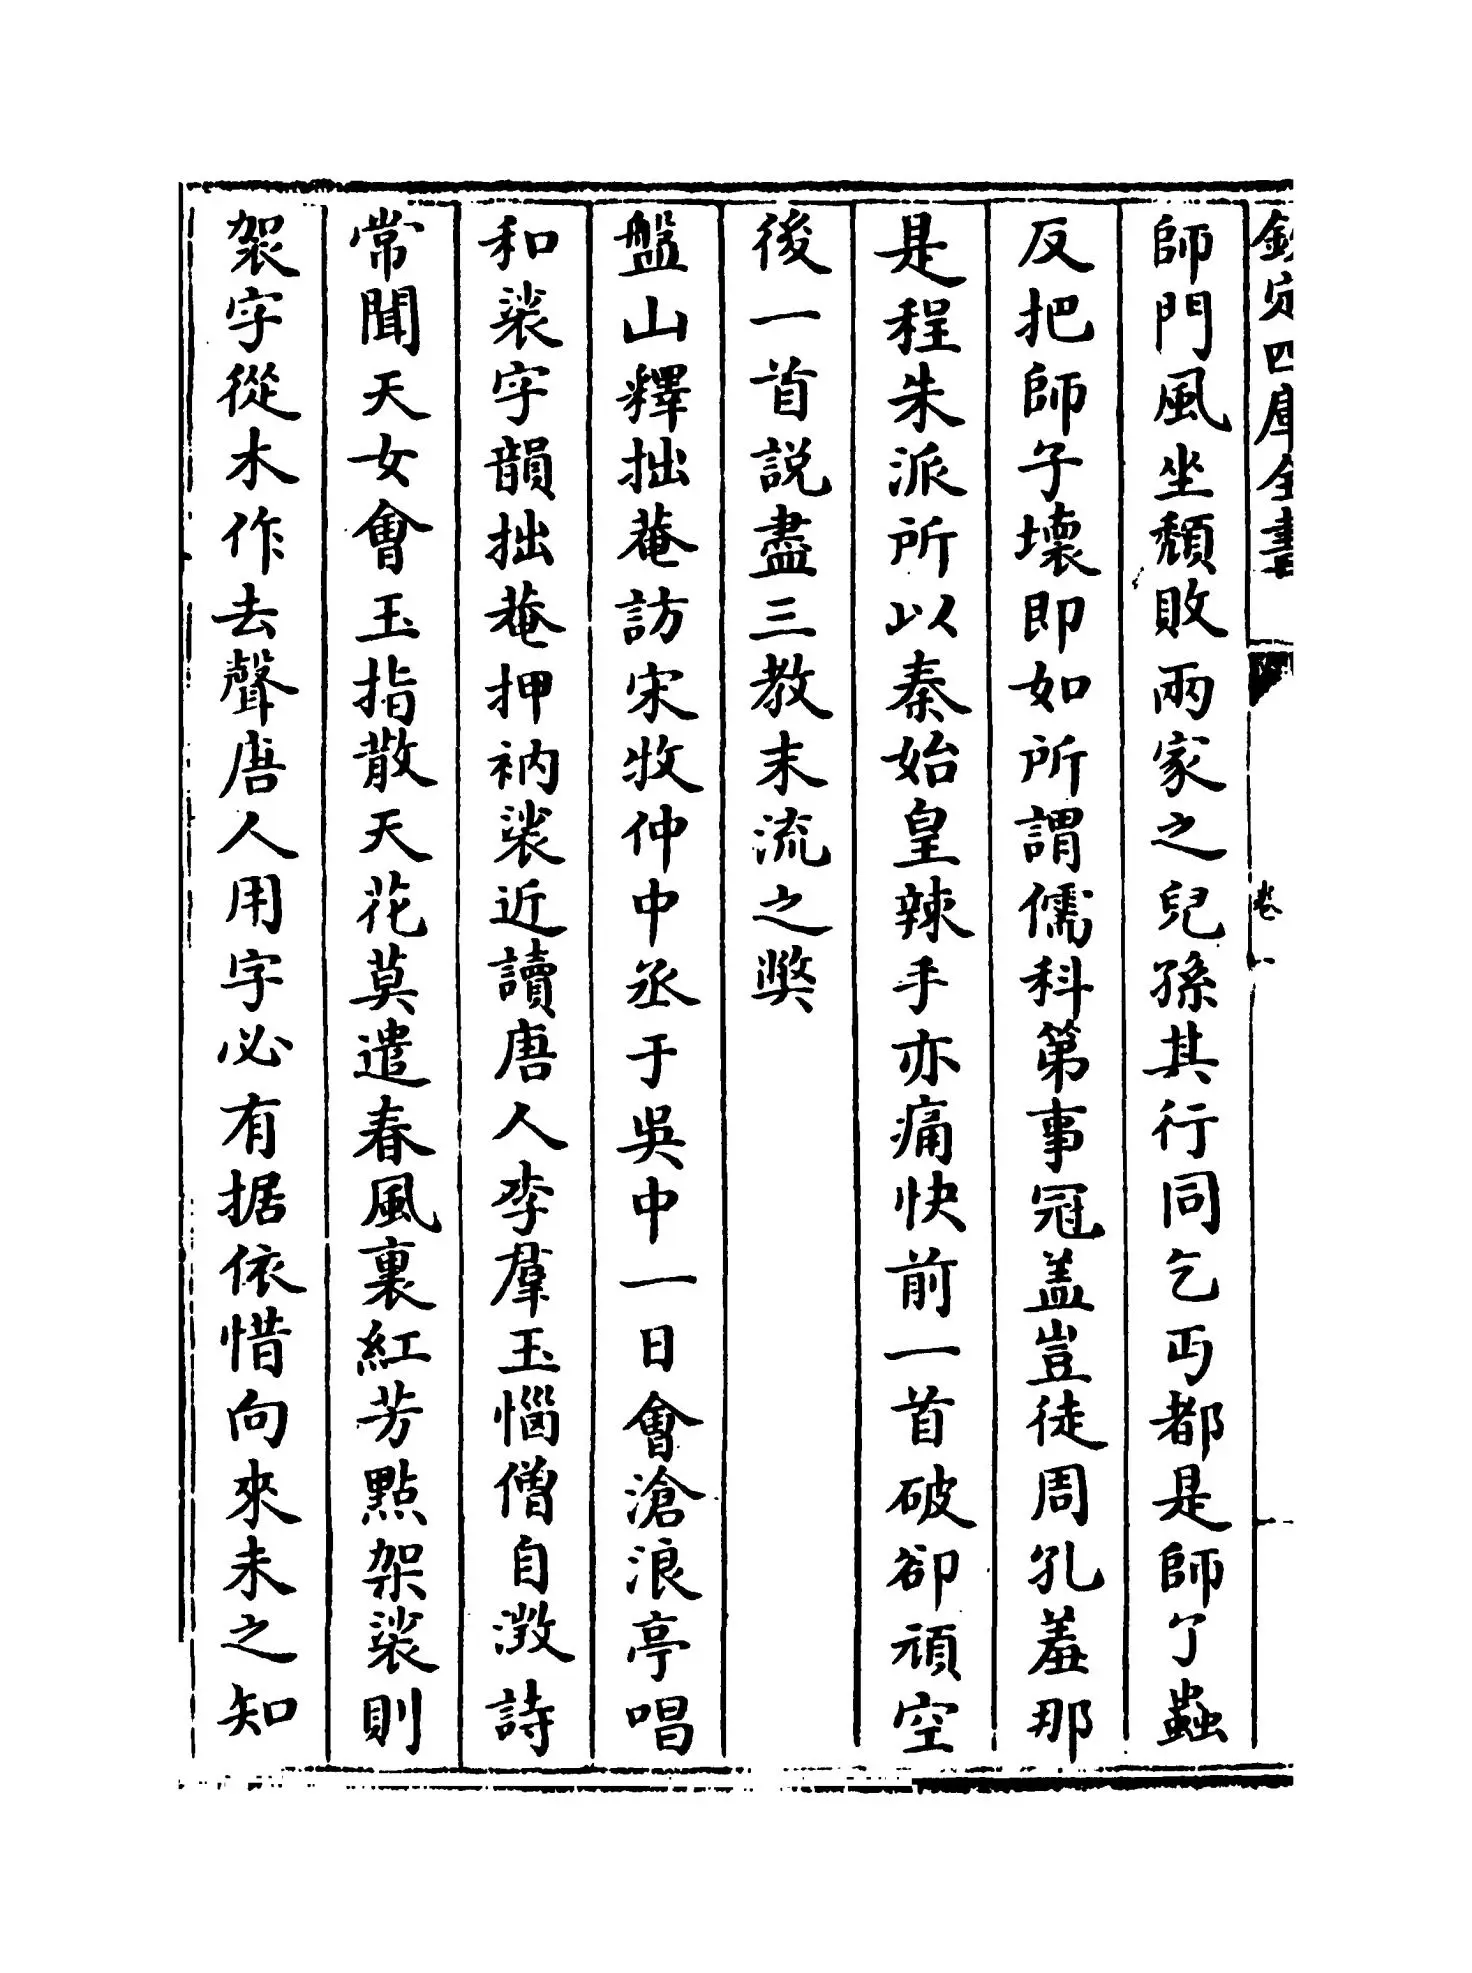 欽定四庫全書
卷一
師門風坐頽敗兩家之兒孫其行同乞丐都是師了蟲
反把師子壞即如所謂儒科第事冠盖豈徒周孔羞那
是程朱派所以秦始皇辣手亦痛快前一首破卻頑空
後一首説盡三教末流之獘
盤山釋拙菴訪宋牧仲中丞于吳中一日會滄浪亭唱
和裟字韻拙菴押衲裟近讀唐人李羣玉惱僧自澂詩
常聞天女會玉指散天花莫遣春風裏紅芳點架裟則
袈字從木作去聲唐人用字必有据依惜向來未之知